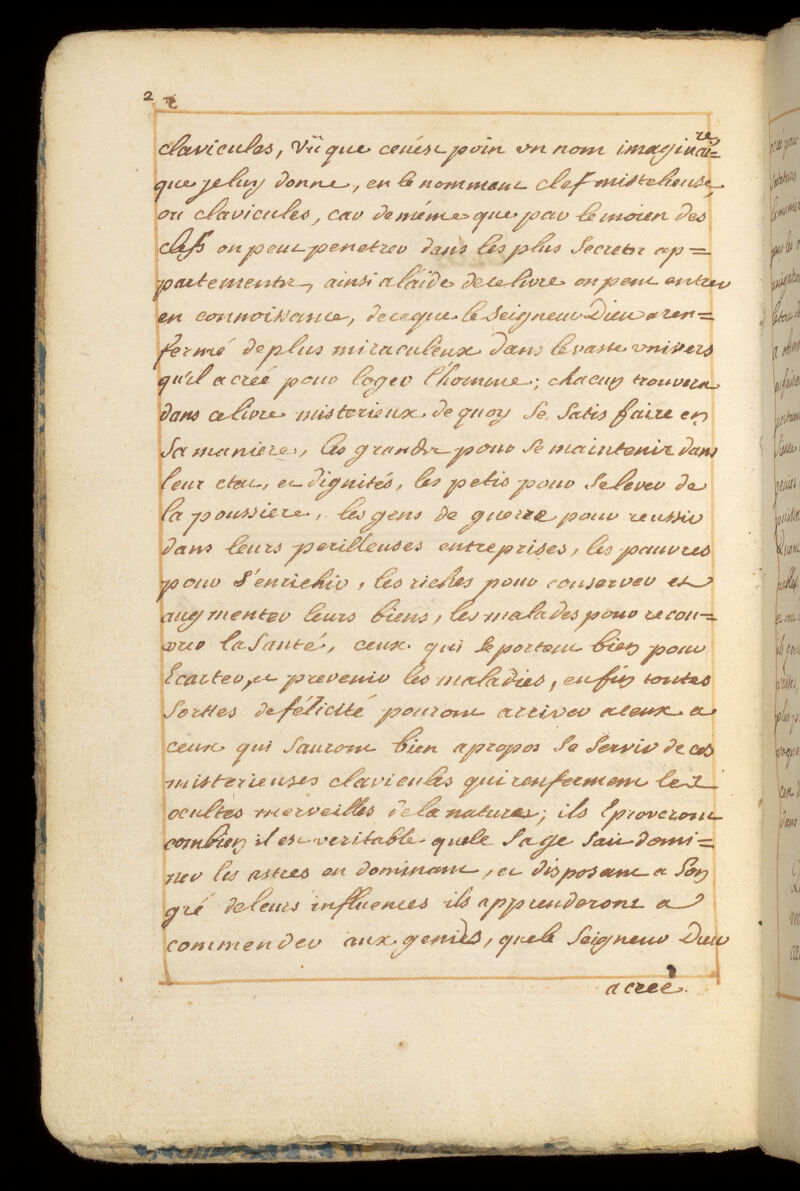 2
clavicules, Vü que cenést poin un nom imaginai=
re,
que je luy donne, en le nommant clef misterieuse,
ou clavicules, car de méme que par le moien des
clefs on peut penetrer dans les plus Secrets ap=
partements, ainsi a laïde de ce livre on peut entrer
en connoissance, de ce que le Seigneur Dieu a ren=
fermé de plus miraculeux dans le vaste univers
qu'il a creé pour loger l'homme; chacun trouvera
dans ce livre misterieux de quoy Se Satis faire en
Sa maniere, les grands pour Se maintenir dans
leur etat, et dignités, les petis pour Selever de
la poussiere, les gens de guerre pour reussir
dans leurs perilleuses entreprises, les pauvres
pour S'enrichir, les riches pour conserver et
augmenter leurs biens, les malades pour recou=
vrer la Santé, ceux qui se portent bien pour
Ecarter, et prevenir les maladies, enfin toutes
Sortes de félicité pouront arriver a ceux a
ceux qui Sauront bien apropos Se Servir de ces
misterieuses clavicules qui renferment les
ocultes merveilles de la nature; ils Eproveront
combien il est veritable que le Sage Sait domi=
ner les astres en dominant, et disposant a Son
gré de leurs influences ils apprenderont a
commender aux genies, que le Seigneur Dieu
a creé